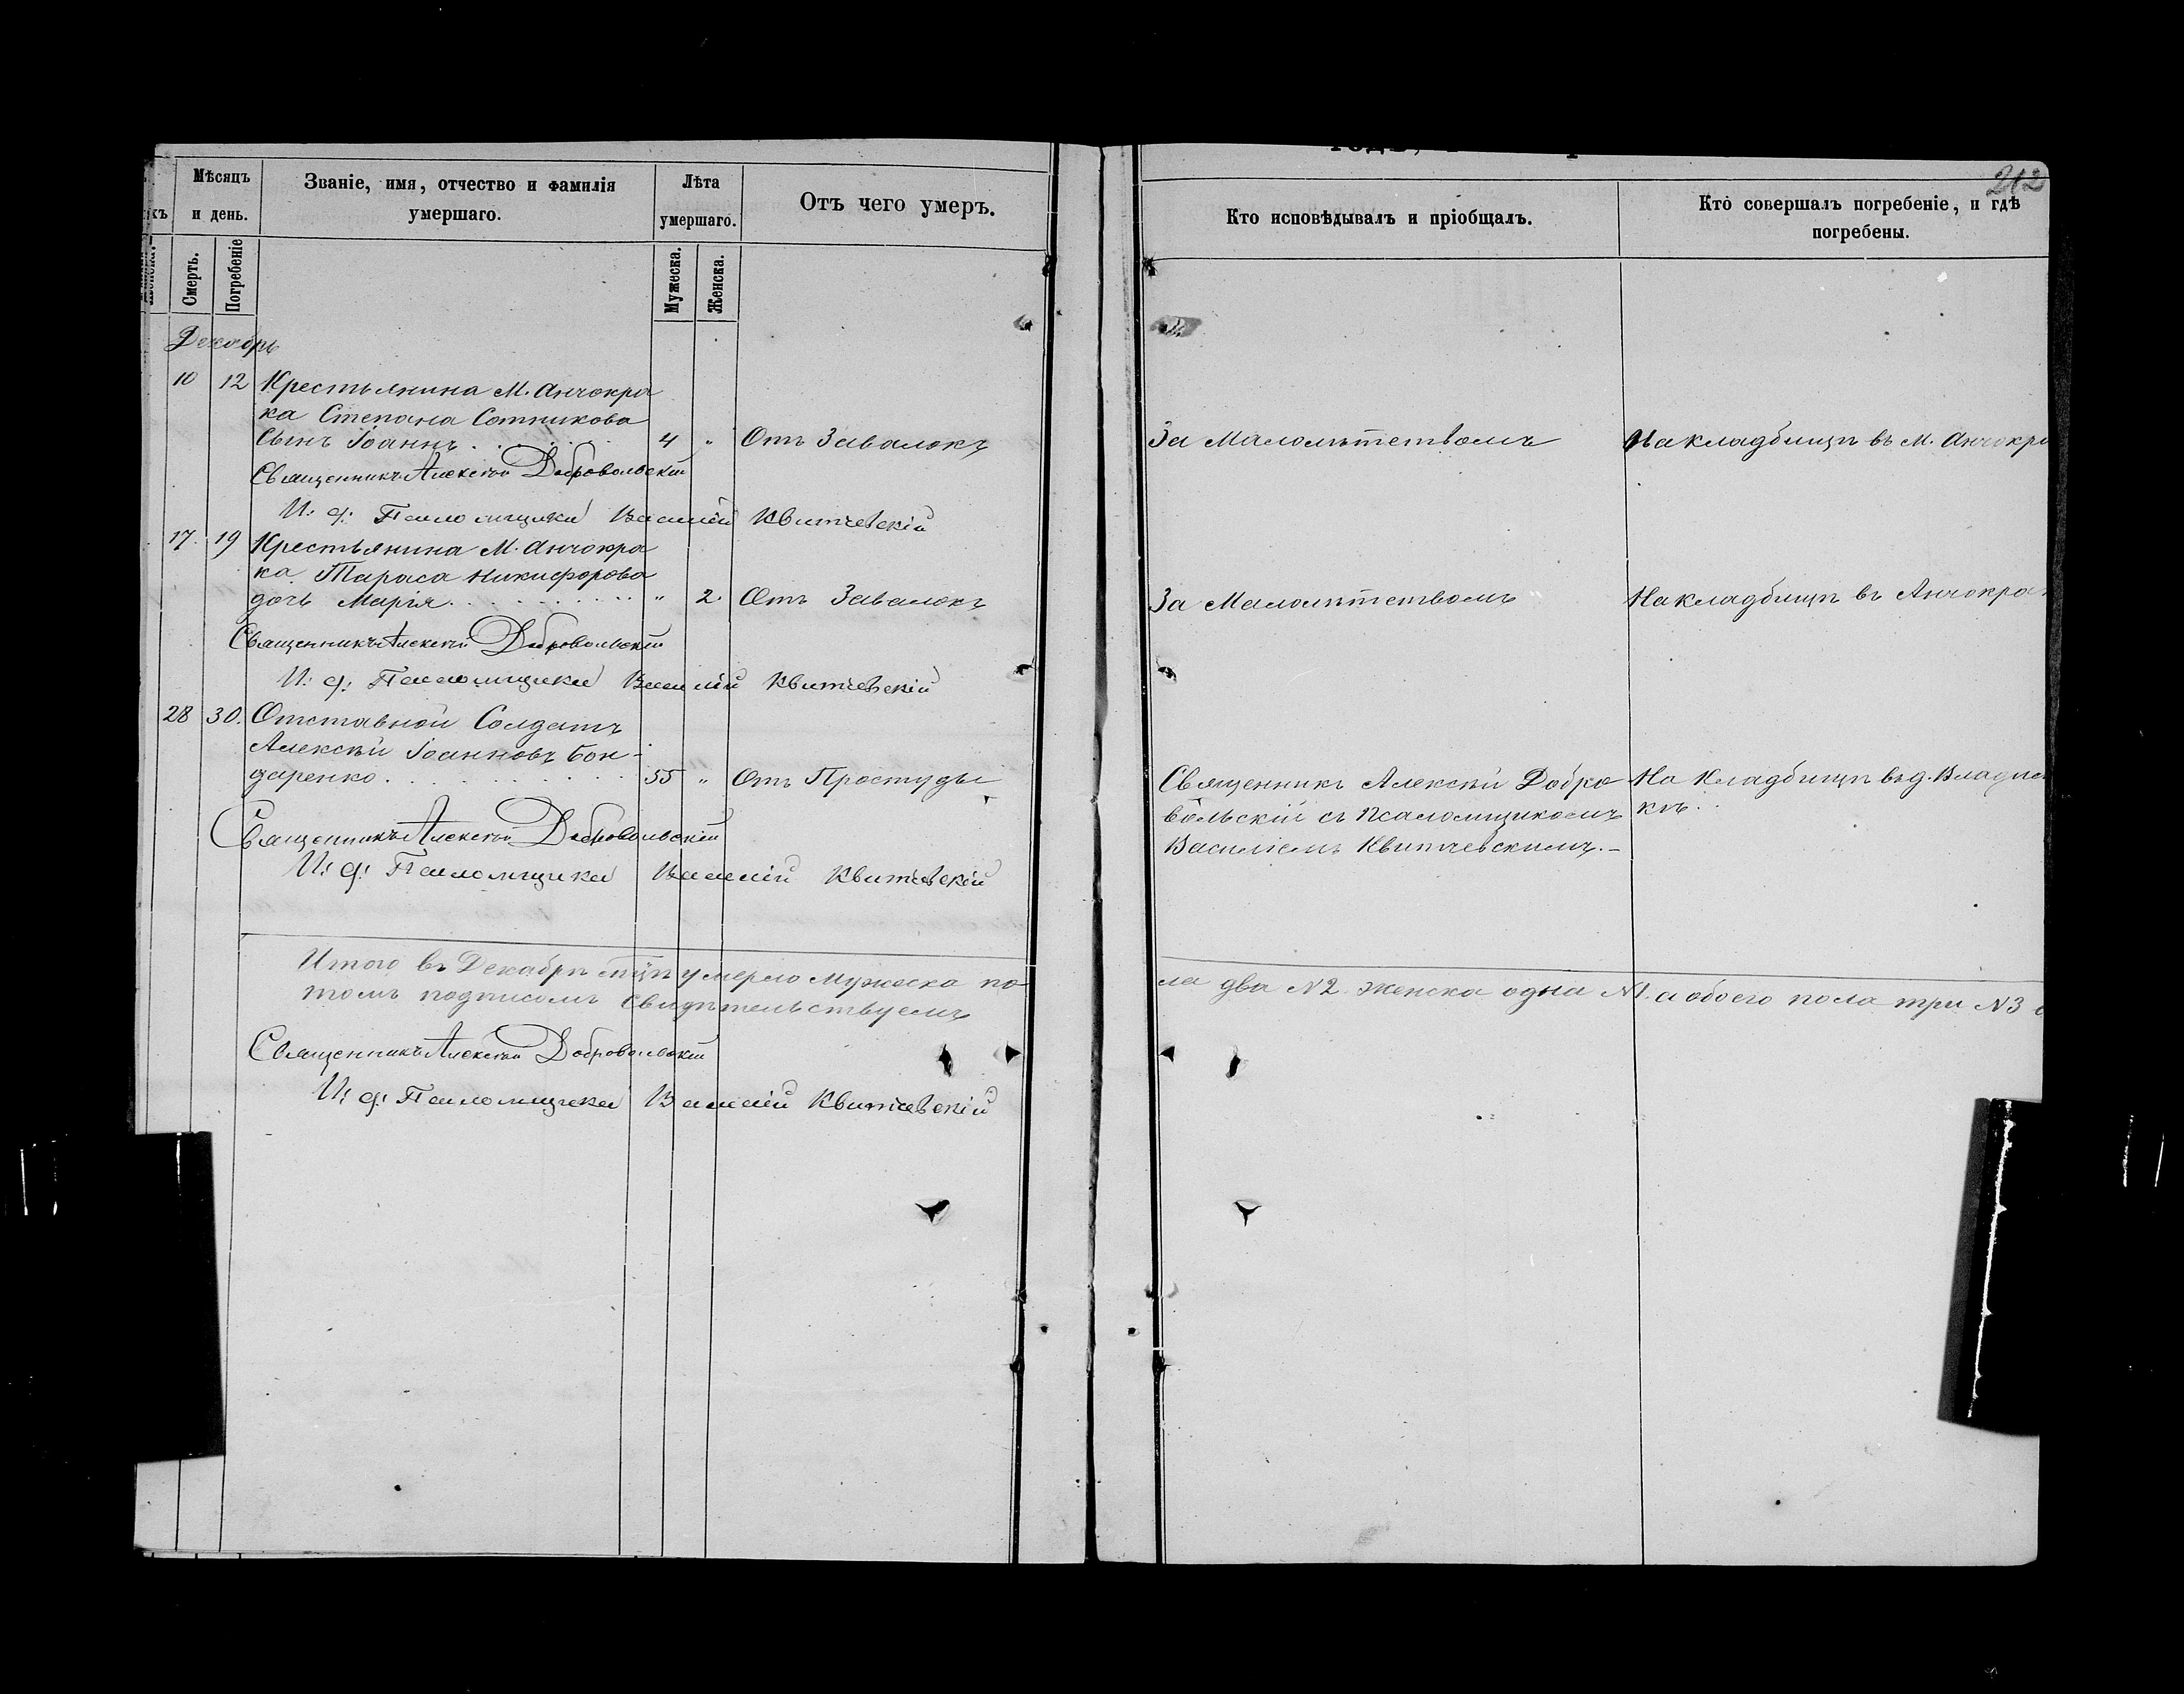 212
Мѣсяцъ и день.
Званіе, имя, отчество и фамилія умершаго.
Лѣта умершаго.
Отъ чего умеръ.
Кто исповѣдывалъ и пріобщалъ.
Кто совершалъ погребеніе, и гдѣ погребены.
Смерть.
Погребеніе
Мужеска.
Женска.
Декабрь
10 12 Крестьянина М. Анчокра
ка Степана Сотникова
Сынъ Іоаннъ 4 " Отъ Завалокъ За Малолѣтствомъ На кладбищѣ въ М. Анчокра
Священникъ Алексѣй Добровольскій
И. д: Псаломщика Василій Квитчевскій
17. 19 Крестьянина М. Анчокра
ка Тараса Никифорова
дочь Марія " 2. Отъ Завалокъ За Малолѣтствомъ На кладбищѣ въ Анчокра
Священникъ Алексѣй Добровольскій
И. д: Псаломщика Василій Квитчевскій
28 30. Отставной Солдатъ
Алексѣй Іоанновъ Бон-
даренко 55 " Отъ Простуды Священникъ Алексѣй Добро На Кладбищѣ въ д.
вольскій съ Псаломщикомъ кѣ.
Василіемъ Квитчевскимъ.-
Священникъ Алексѣй Добровольскій
И: д: Псаломщика Василій Квитчевскій
Итого въ Декабрѣ мцѣ умерло Мужеска по ла два N2 женска одна N1. а обоего пола три N3
томъ подписомъ свидѣтельствуемъ
Священникъ Алексѣй Добровольскій
И: д: Псаломщика Василій Квитчевскій